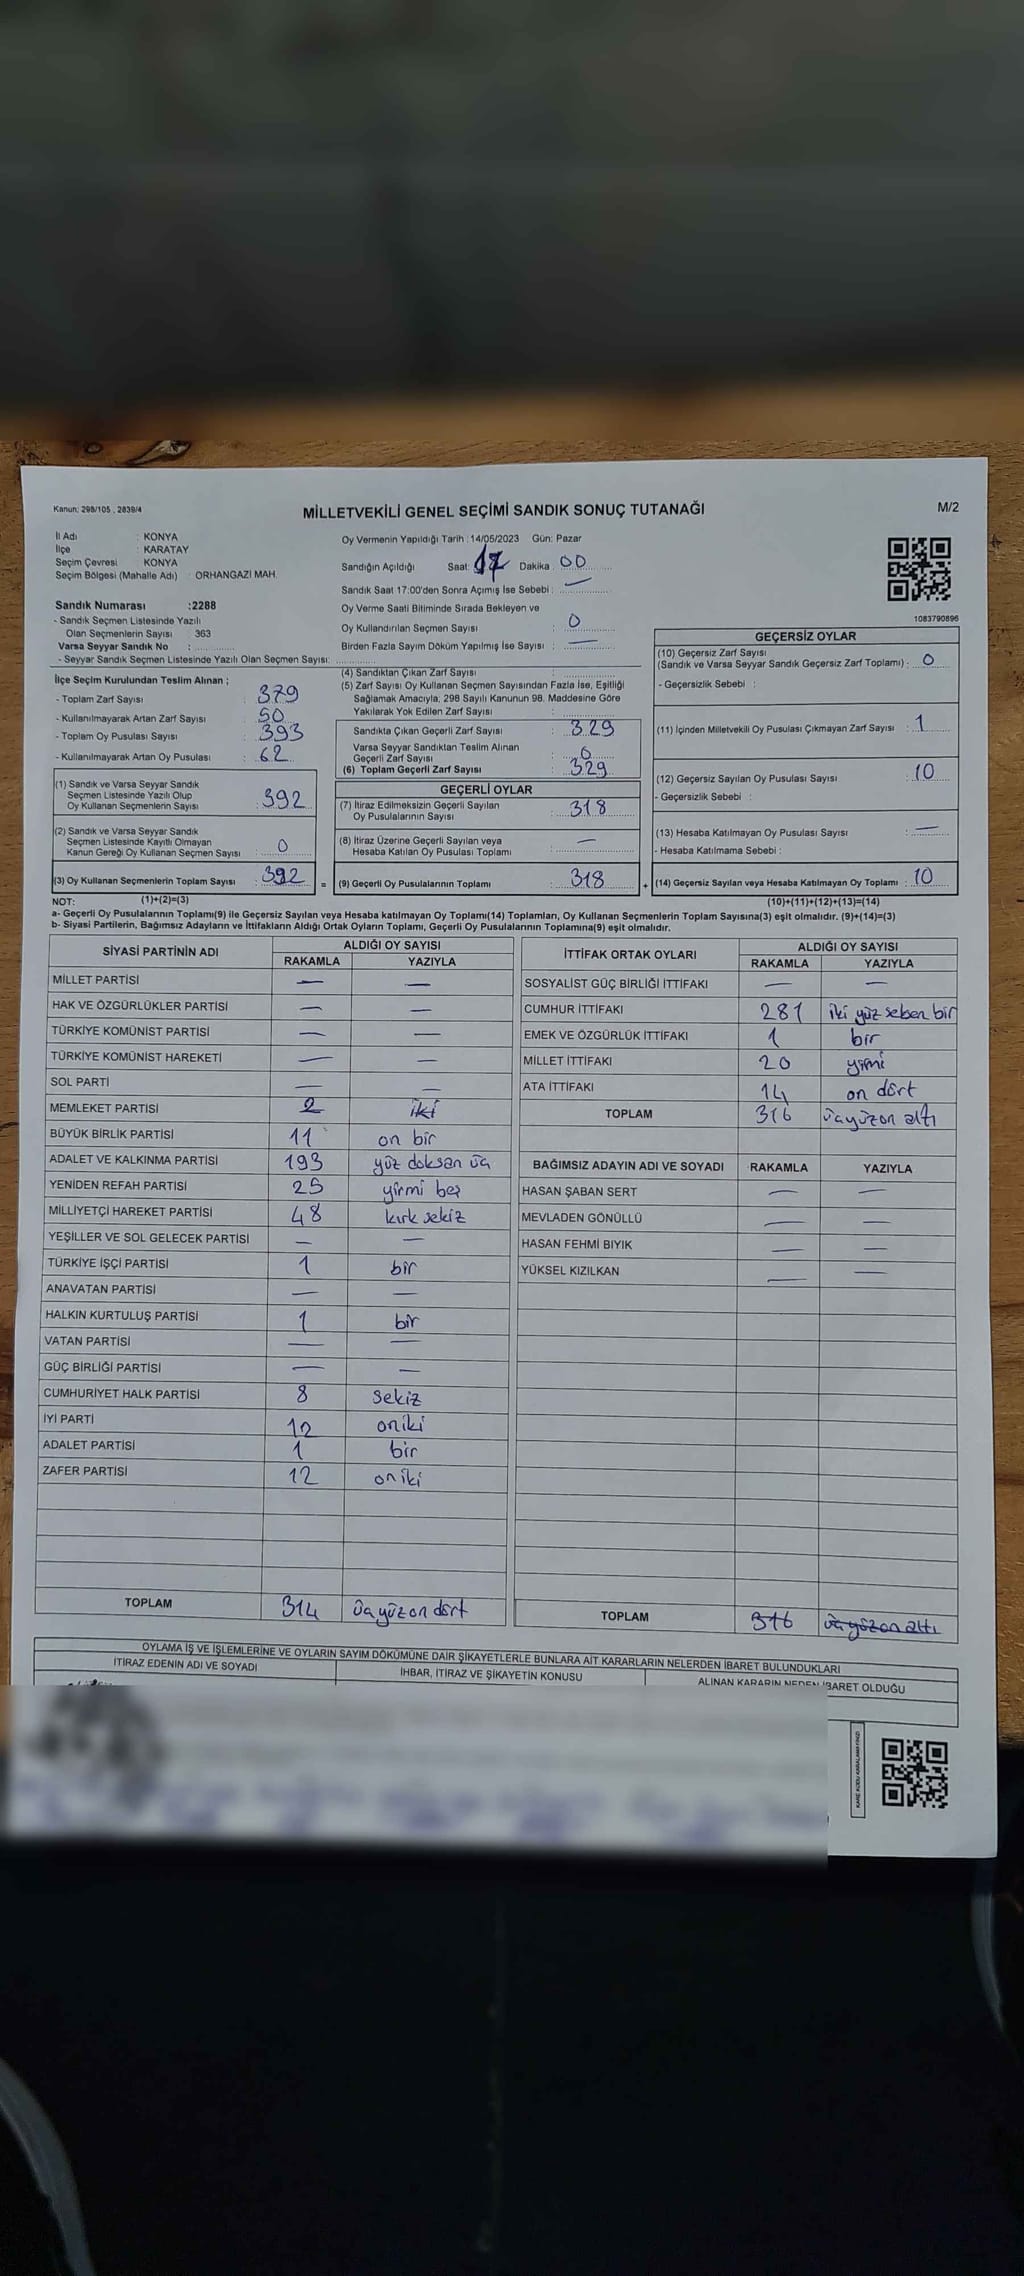 Kanun: 298/105 , 2839/4
MİLLETVEKİLİ GENEL SEÇİMİ SANDIK SONUÇ TUTANAĞI
M/2
İl Adı : KONYA
İlçe : KARATAY
Seçim Çevresi : KONYA
Seçim Bölgesi (Mahalle Adı) : ORHANGAZİ MAH.
Sandık Numarası :2288
- Sandık Seçmen Listesinde Yazılı
Olan Seçmenlerin Sayısı : 363
Varsa Seyyar Sandık No :
- Seyyar Sandık Seçmen Listesinde Yazılı Olan Seçmen Sayısı:
Oy Vermenin Yapıldığı Tarih :14/05/2023 Gün: Pazar
Sandığın Açıldığı Saat: 17 Dakika : 00
Sandık Saat 17:00'den Sonra Açımış İse Sebebi : —
Oy Verme Saati Bitiminde Sırada Bekleyen ve
Oy Kullandırılan Seçmen Sayısı : 0
Birden Fazla Sayım Döküm Yapılmış İse Sayısı : —
1083790896
İlçe Seçim Kurulundan Teslim Alınan ;
- Toplam Zarf Sayısı : 379
- Kullanılmayarak Artan Zarf Sayısı : 50
- Toplam Oy Pusulası Sayısı : 393
- Kullanılmayarak Artan Oy Pusulası : 62
(1) Sandık ve Varsa Seyyar Sandık
Seçmen Listesinde Yazılı Olup
Oy Kullanan Seçmenlerin Sayısı : 392
(2) Sandık ve Varsa Seyyar Sandık
Seçmen Listesinde Kayıtlı Olmayan
Kanun Gereği Oy Kullanan Seçmen Sayısı : 0
(3) Oy Kullanan Seçmenlerin Toplam Sayısı : 392
(4) Sandıktan Çıkan Zarf Sayısı :
(5) Zarf Sayısı Oy Kullanan Seçmen Sayısından Fazla İse, Eşitliği
Sağlamak Amacıyla; 298 Sayılı Kanunun 98. Maddesine Göre
Yakılarak Yok Edilen Zarf Sayısı :
Sandıkta Çıkan Geçerli Zarf Sayısı : 329
Varsa Seyyar Sandıktan Teslim Alınan
Geçerli Zarf Sayısı : 0
(6) Toplam Geçerli Zarf Sayısı : 329
GEÇERLİ OYLAR
(7) İtiraz Edilmeksizin Geçerli Sayılan
Oy Pusulalarının Sayısı : 318
(8) İtiraz Üzerine Geçerli Sayılan veya
Hesaba Katılan Oy Pusulası Toplamı : —
= (9) Geçerli Oy Pusulalarının Toplamı : 318
GEÇERSİZ OYLAR
(10) Geçersiz Zarf Sayısı
(Sandık ve Varsa Seyyar Sandık Geçersiz Zarf Toplamı) : 0
- Geçersizlik Sebebi :
(11) İçinden Milletvekili Oy Pusulası Çıkmayan Zarf Sayısı : 1
(12) Geçersiz Sayılan Oy Pusulası Sayısı : 10
- Geçersizlik Sebebi :
(13) Hesaba Katılmayan Oy Pusulası Sayısı : —
- Hesaba Katılmama Sebebi :
+ (14) Geçersiz Sayılan veya Hesaba Katılmayan Oy Toplamı : 10
NOT: (1)+(2)=(3) (10)+(11)+(12)+(13)=(14)
a- Geçerli Oy Pusulalarının Toplamı(9) ile Geçersiz Sayılan veya Hesaba katılmayan Oy Toplamı(14) Toplamları, Oy Kullanan Seçmenlerin Toplam Sayısına(3) eşit olmalıdır. (9)+(14)=(3)
b- Siyasi Partilerin, Bağımsız Adayların ve İttifakların Aldığı Ortak Oyların Toplamı, Geçerli Oy Pusulalarının Toplamına(9) eşit olmalıdır.
SİYASİ PARTİNİN ADI ALDIĞI OY SAYISI
RAKAMLA YAZIYLA
MİLLET PARTİSİ — —
HAK VE ÖZGÜRLÜKLER PARTİSİ — —
TÜRKİYE KOMÜNİST PARTİSİ — —
TÜRKİYE KOMÜNİST HAREKETİ — —
SOL PARTİ — —
MEMLEKET PARTİSİ 2 iki
BÜYÜK BİRLİK PARTİSİ 11 on bir
ADALET VE KALKINMA PARTİSİ 193 yüz doksan üç
YENİDEN REFAH PARTİSİ 25 yirmi beş
MİLLİYETÇİ HAREKET PARTİSİ 48 kırk sekiz
YEŞİLLER VE SOL GELECEK PARTİSİ — —
TÜRKİYE İŞÇİ PARTİSİ 1 bir
ANAVATAN PARTİSİ — —
HALKIN KURTULUŞ PARTİSİ 1 bir
VATAN PARTİSİ — —
GÜÇ BİRLİĞİ PARTİSİ — —
CUMHURİYET HALK PARTİSİ 8 sekiz
İYİ PARTİ 12 oniki
ADALET PARTİSİ 1 bir
ZAFER PARTİSİ 12 oniki
TOPLAM 314 üçyüz on dört
İTTİFAK ORTAK OYLARI ALDIĞI OY SAYISI
RAKAMLA YAZIYLA
SOSYALİST GÜÇ BİRLİĞİ İTTİFAKI — —
CUMHUR İTTİFAKI 281 iki yüz seksen bir
EMEK VE ÖZGÜRLÜK İTTİFAKI 1 bir
MİLLET İTTİFAKI 20 yirmi
ATA İTTİFAKI 14 on dört
TOPLAM 316 üçyüzon altı
BAĞIMSIZ ADAYIN ADI VE SOYADI RAKAMLA YAZIYLA
HASAN ŞABAN SERT — —
MEVLADEN GÖNÜLLÜ — —
HASAN FEHMİ BIYIK — —
YÜKSEL KIZILKAN — —
TOPLAM 316 üçyüzon altı
OYLAMA İŞ VE İŞLEMLERİNE VE OYLARIN SAYIM DÖKÜMÜNE DAİR ŞİKAYETLERLE BUNLARA AİT KARARLARIN NELERDEN İBARET BULUNDUKLARI
İTİRAZ EDENİN ADI VE SOYADI İHBAR, İTİRAZ VE ŞİKAYETİN KONUSU ALINAN KARARIN NEDEN İBARET OLDUĞU
KARE KODU KARALAMAYINIZ!